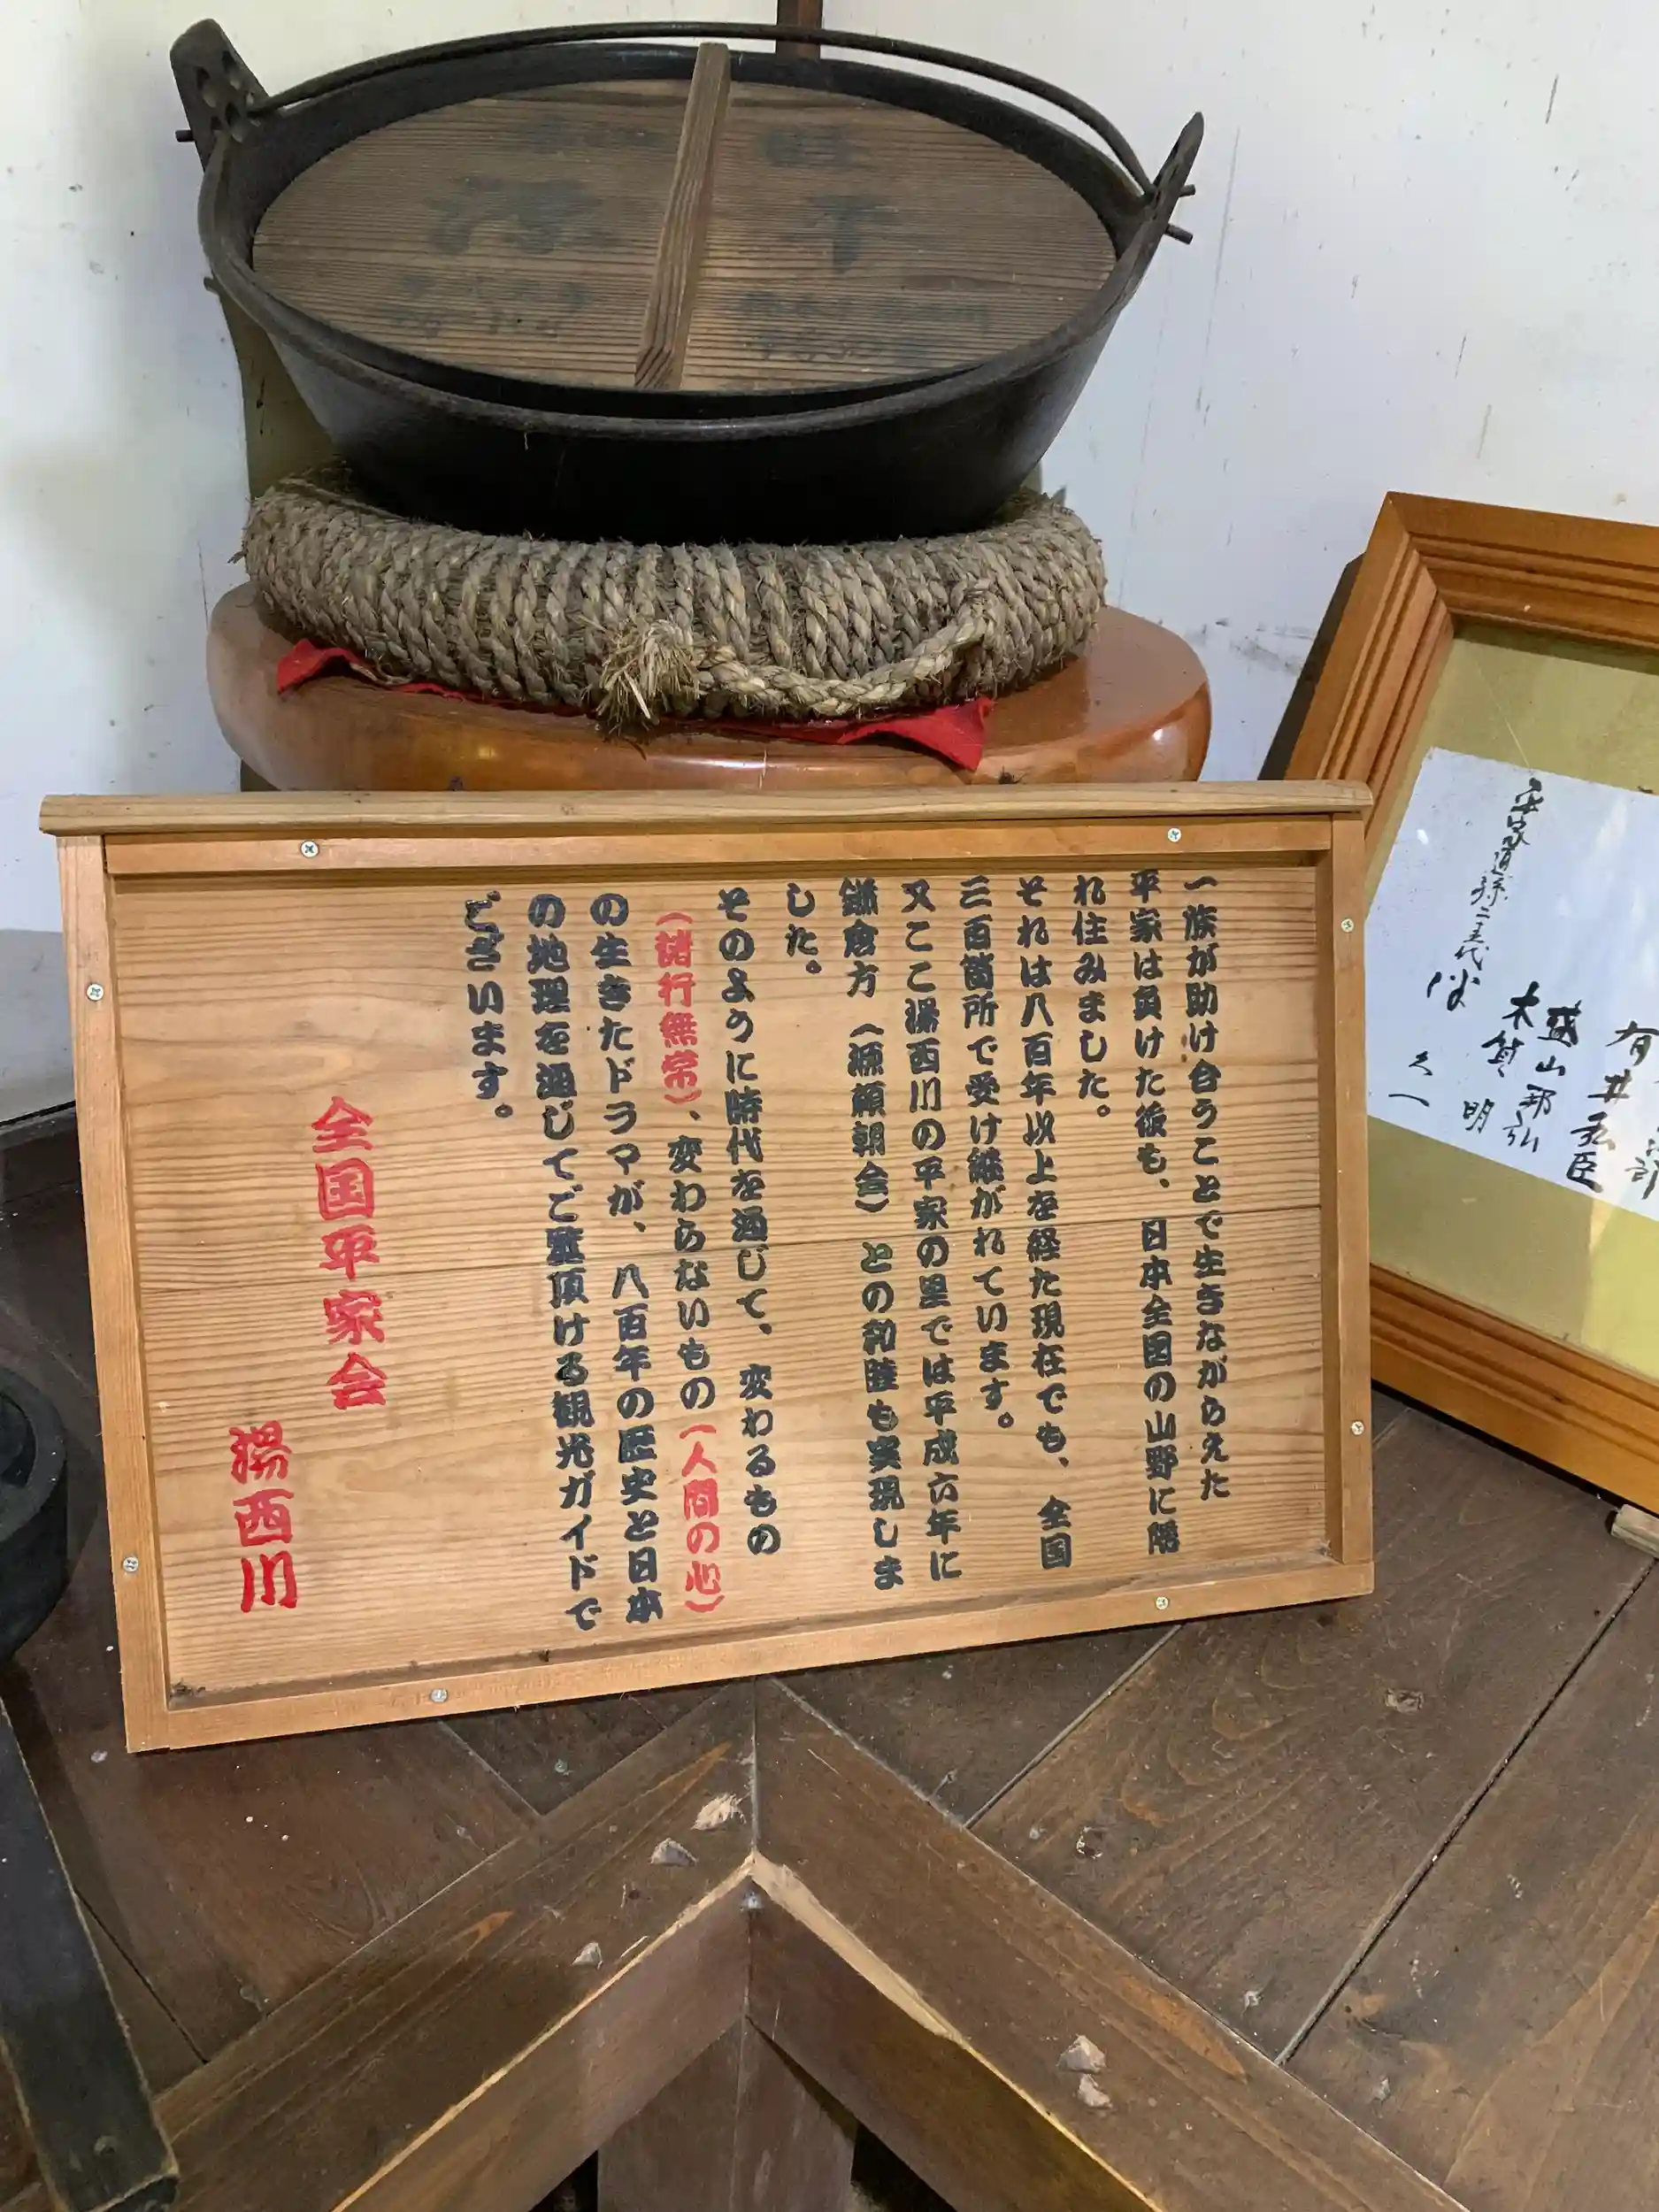 一族が助け合うことで生きながらえた
平家は負けた後も、日本全国の山野に隠
れ住みました。
それは八百年以上を経た現在でも、全国
三百箇所で受け継がれています。
又ここ湯西川の平家の里では平成六年に
鎌倉方（源頼朝会）との和睦も実現しま
した。
そのように時代を通じて、変わるもの
（諸行無常）、変わらないもの（人間の心）
の生きたドラマが、八百年の歴史と日本
の地理を通じてご覧頂ける観光ガイドで
ございます。
全国平家会
湯西川
有井弘臣
盛山邦弘
木贊明